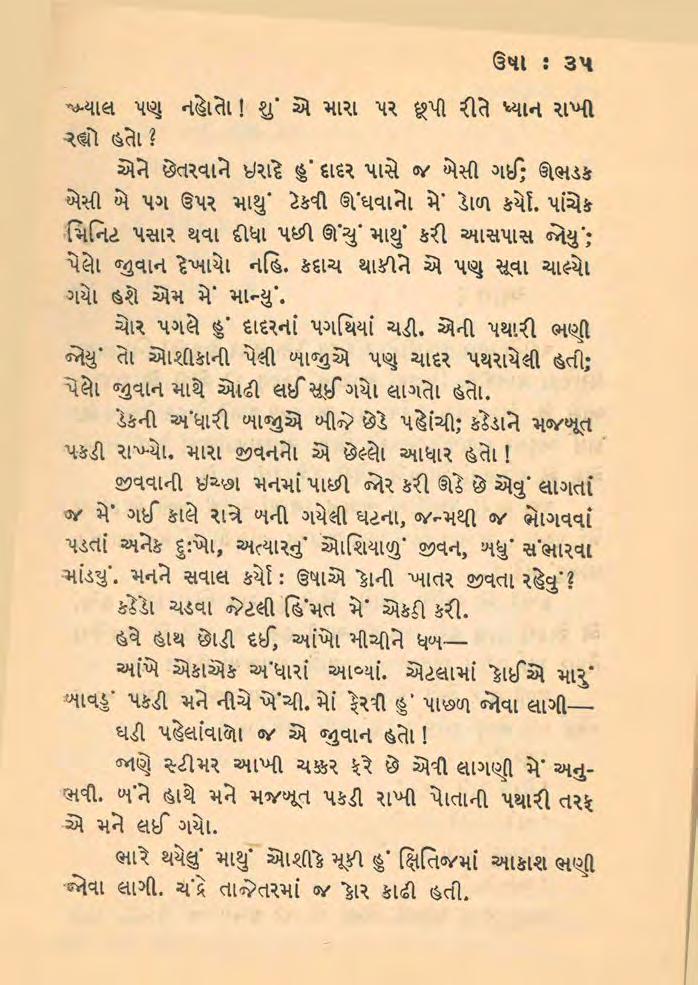 ઉષા : ૩૫
ખ્યાલ પણ નહોતો! શું એ મારા પર છૂપી રીતે ધ્યાન રાખી
રહ્યો હતો?
એને છેતરવાને ઇરાદે હું દાદર પાસે જ બેસી ગઈ; ઊભડક
બેસી બે પગ ઉપર માથું ટેકવી ઊંઘવાનો મેં ડોળ કર્યો. પાંચેક
મિનિટ પસાર થવા દીધા પછી ઊંચું માથું કરી આસપાસ જોયું;
પેલો જુવાન દેખાયો નહિ. કદાચ થાકીને એ પણ સૂવા ચાલ્યો
ગયો હશે એમ મેં માન્યું.
ચોર પગલે હું દાદરનાં પગથિયાં ચડી. એની પથારી ભણી
જોયું તો ઓશીકાની પેલી બાજુએ પણ ચાદર પથરાયેલી હતી;
પેલો જુવાન માથે ઓઢી લઈ સૂઈ ગયો લાગતો હતો.
ડેકની અંધારી બાજુએ બીજે છેડે પહોંચી; કઠેડાને મજબૂત
પકડી રાખ્યો. મારા જીવનનો એ છેલ્લો આધાર હતો!
જીવવાની ઇચ્છા મનમાં પાછી જોર કરી ઊઠે છે એવું લાગતાં
જ મેં ગઈ કાલે રાત્રે બની ગયેલી ઘટના, જન્મથી જ ભોગવવાં
પડતાં અનેક દુઃખો, અત્યારનું ઓશિયાળું જીવન, બધું સંભારવા
માંડયું. મનને સવાલ કર્યો : ઉષાએ કોની ખાતર જીવતા રહેવું?
કઠેડો ચડવા જેટલી હિંમત મેં એકઠી કરી.
હવે હાથ છોડી દઈ, આંખો મીચીને ધબ—
આંખે એકાએક અંધારાં આવ્યાં. એટલામાં કોઈએ મારું
બાવડું પકડી મને નીચે ખેંચી. મોં ફેરવી હું પાછળ જોવા લાગી—
ઘડી પહેલાંવાળો જ એ જુવાન હતો!
જાણે સ્ટીમર આખી ચક્કર ફરે છે એવી લાગણી મેં અનુ-
ભવી. બંને હાથે મને મજબૂત પકડી રાખી પોતાની પથારી તરફ
એ મને લઈ ગયો.
ભારે થયેલું માથું ઓશીકે મૂકી હું ક્ષિતિજમાં આકાશ ભણી
જોવા લાગી. ચંદ્રે તાજેતરમાં જ કોર કાઢી હતી.